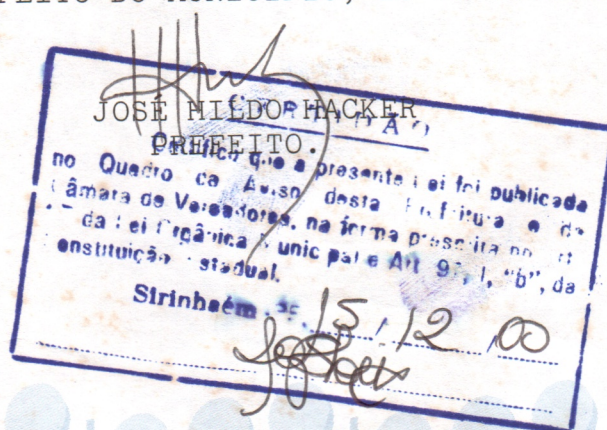 JOSÉ HILDO HACKER
PREFEITO.
CERTIDÃO
Certifico que a presente Lei foi publicada
no Quadro de Aviso desta Prefeitura e da
Câmara de Vereadores, na forma prescrita no
da Lei Orgânica Municipal e Art. 97, I, "b", da
Constituição Estadual.
Sirinhaém 15/12/00